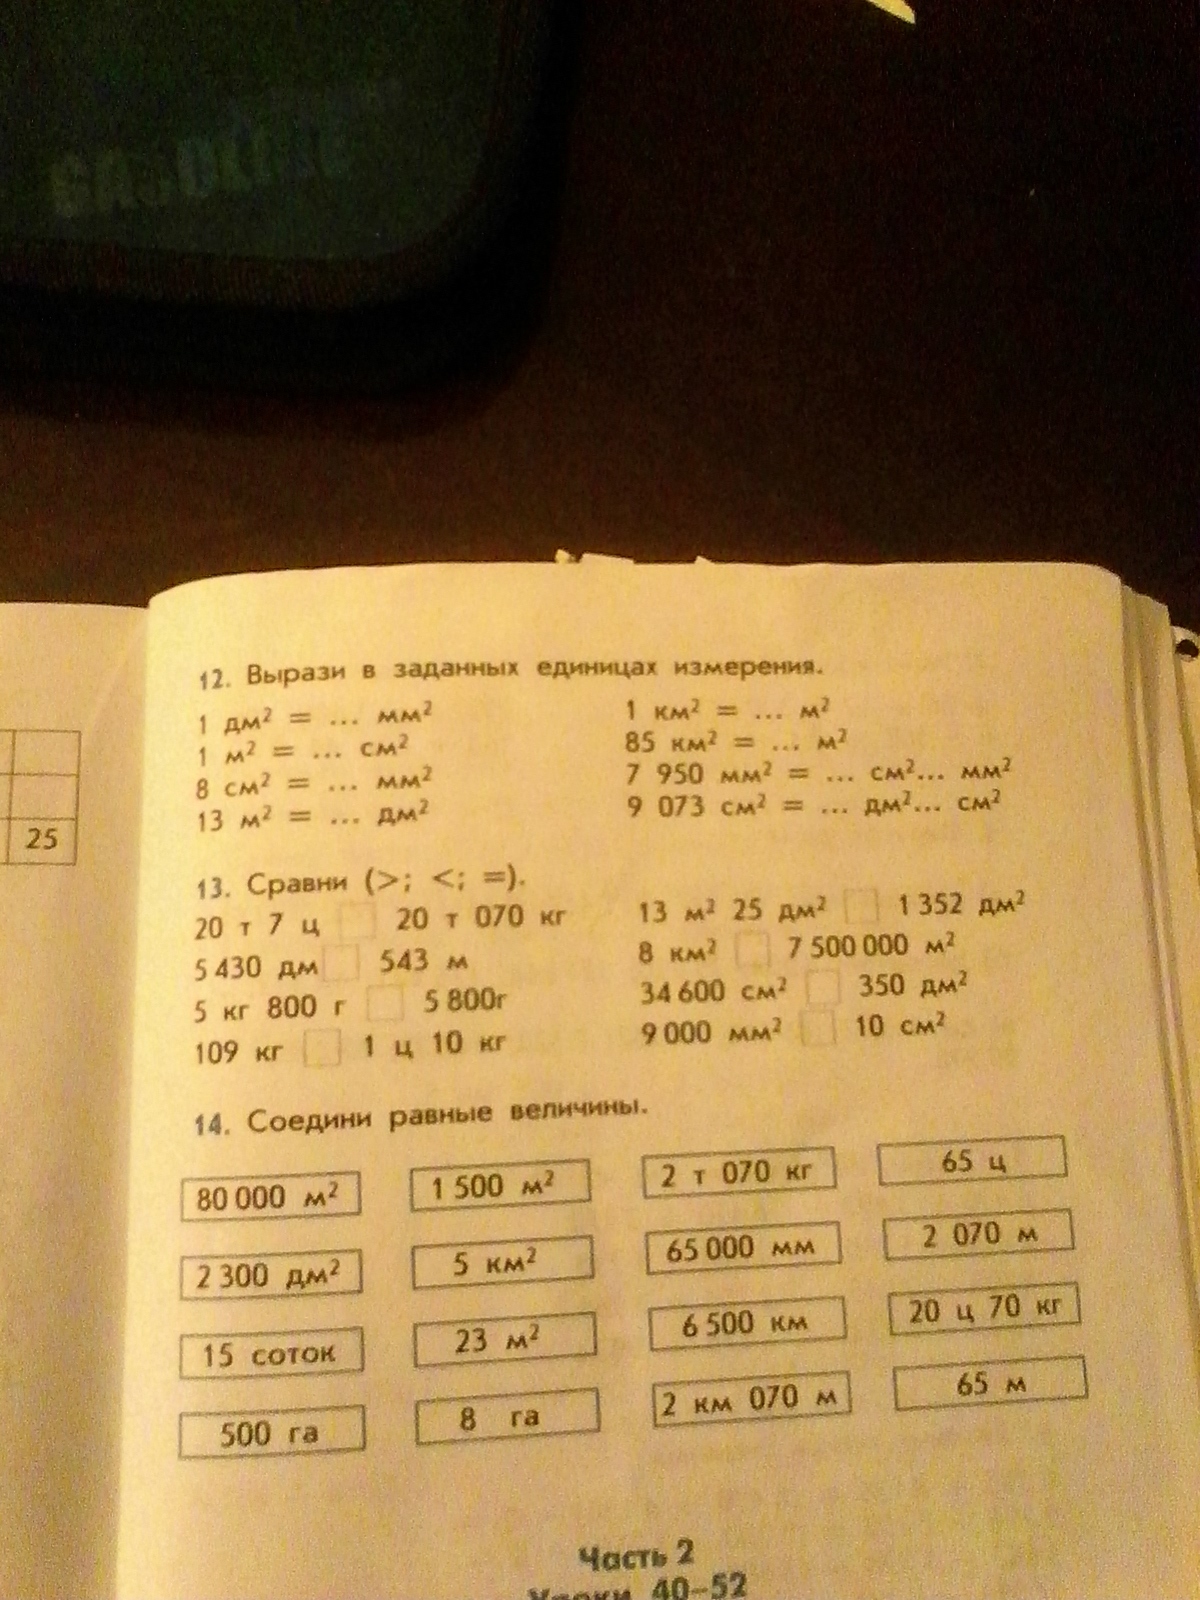 25
12. Вырази в заданных единицах измерения.
1 дм² = ... мм²
1 м² = ... см²
8 см² = ... мм²
13 м² = ... дм²
1 км² = ... м²
85 км² = ... м²
7 950 мм² = ... см²... мм²
9 073 см² = ... дм²... см²
13. Сравни (>; <; =).
20 т 7 ц 20 т 070 кг
5 430 дм 543 м
5 кг 800 г 5 800г
109 кг 1 ц 10 кг
13 м² 25 дм² 1 352 дм²
8 км² 7 500 000 м²
34 600 см² 350 дм²
9 000 мм² 10 см²
14. Соедини равные величины.
80 000 м² 1 500 м² 2 т 070 кг 65 ц
2 300 дм² 5 км² 65 000 мм 2 070 м
15 соток 23 м² 6 500 км 20 ц 70 кг
500 га 8 га 2 км 070 м 65 м
Часть 2
Уроки 40–52